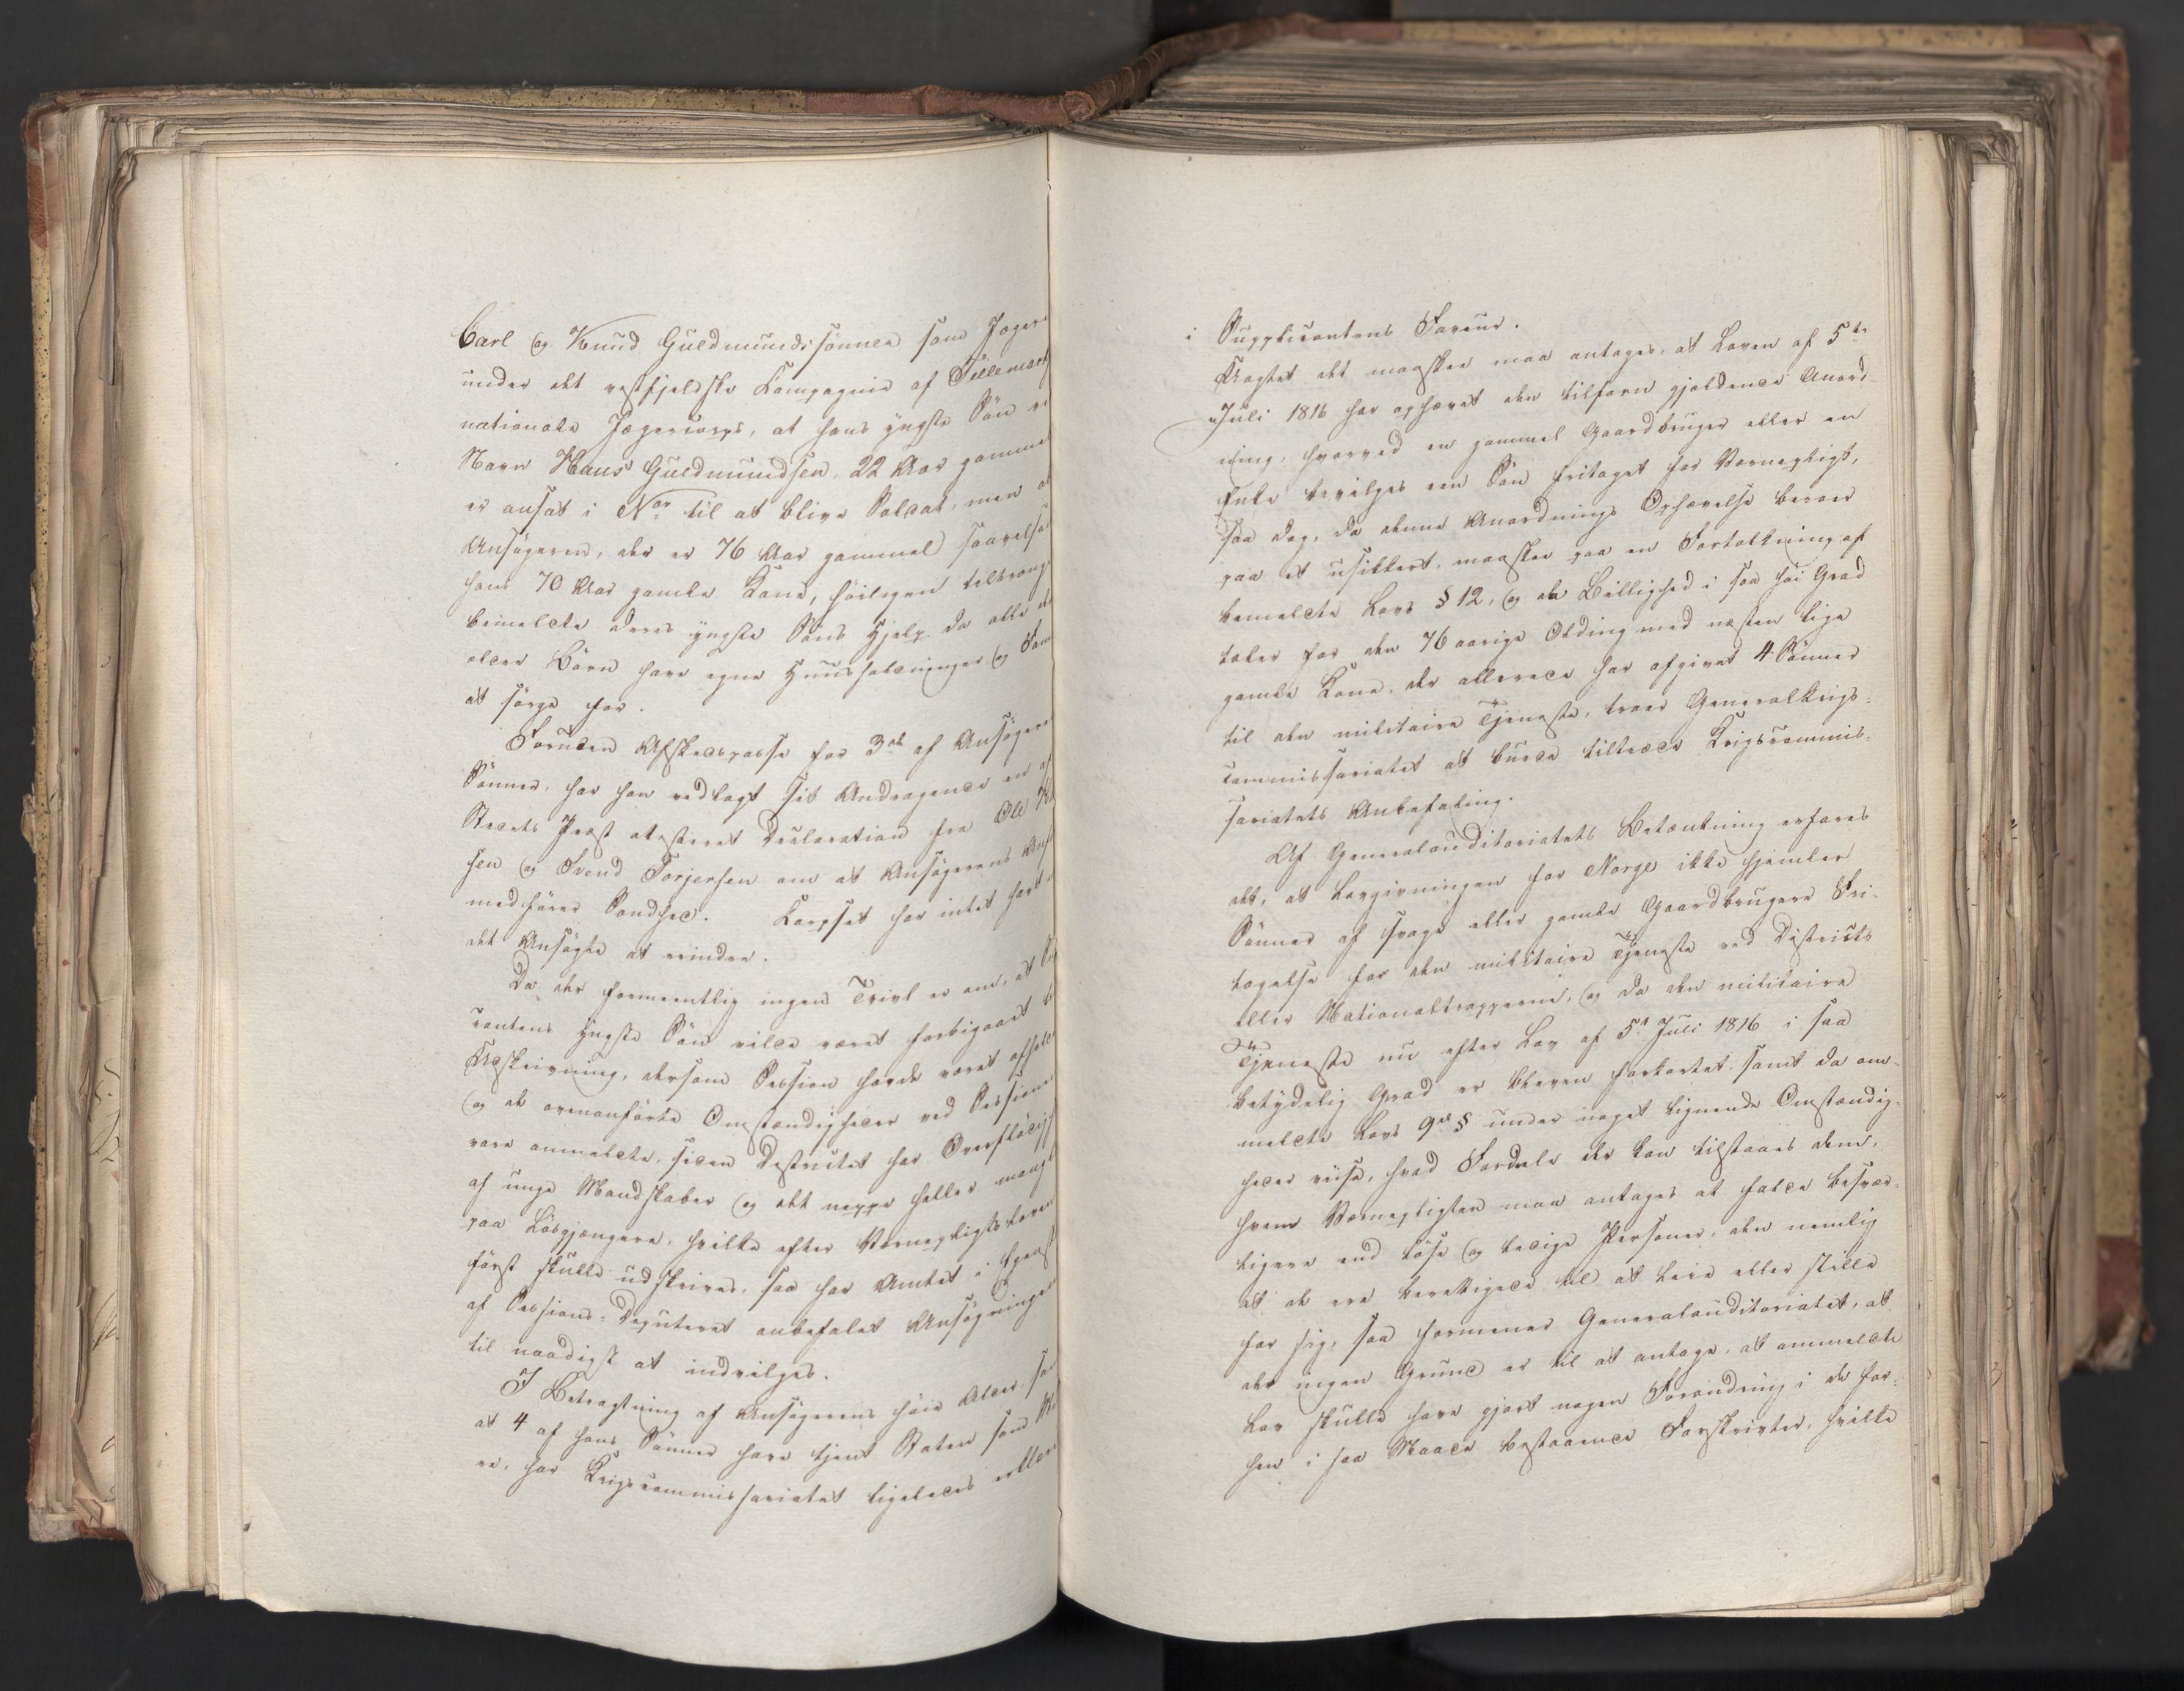 Carl og Knud Guldmundssönner som Jæger
under det vestfjeldske Compagnie af Tellemark
nationale Jægercorps, at hans yngste Sön ve
Navn Hans Guldmundsen, 22 Aar gamme
er ansat i Nor til at blive Soldat, men a
Ansögeren, der er 76 Aar gammel saavelso
hans 70 Aar gamle Kone, höiligen tiltrænge
bemeldte deres yngste Söns Hjelp da alle de
ældre Börn have egne Huusholdninger og Fam
at sörge for.
Foruden Afskedspasse for 3de af Ansögere
Sönner, har han vedlagt sit Andragende en af
Stedets Præst atesteret Declaration fra Ole
sen og Svend Torjersen om at Ansögerens Ansö
medförer Sandhed. Corpset har intet imod
det Ansögte at erindre.
Da der formeentlig ingen Tvivl er om, at Su
cantens yngste Sön vilde været forbigaaet v
Udskrivning, dersom Session havde været afholdt
og de ovenanförte Omstændigheder ved Sessione
vare anmeldte, siden Destrictet har Overflödigh
af unge Mandskaber og det neppe heller mangl
paa Lösgjængere, hvilke efter Værnepligtsloven
först skulle udskrives, saa har Amtet i Egensk
af Sessions-Deputeret anbefalet Ansögningen
til naadigst at indvilges.
I Betragtning af Ansögerens höie Alder, sa
at 4 af hans Sönner have tjent Staten som
re, har Krigscommissariatet ligeledes erklær
i Supplicantens Faveur.
Uagtet det maaskee maa antages, at Loven af 5te
Juli 1816 har ophævet den tilforn gjeldende Anord-
ning, hvorved en gammel Gaardbruger eller en
Enke bevilges een Sön fritaget for Værnepligt,
saa dog, da denne Anordnings Ophævelse beroer
paa et usikkert, maaskee paa en Fortolkning af
bemeldte Lovs § 12, og da Billighed i saa höi Grad
taler for den 76 aarige Olding med næsten lige
gamle Kone, der allerede har afgivet 4 Sönner
til den militaire Tjeneste, troer Generalkrigs-
commissariatet at burde tiltræde Krigscommis-
sariatets Anbefaling.
Af Generalauditoriatets Betænkning erfares
det, at Lovgivningen for Norge ikke hjemler
Sönner af svage eller gamle Gaardbrugere Fri-
tagelse for den militaire Tjeneste ved Districts
eller Nationaltropperne, og da den militaire
Tjeneste nu efter Lov af 5te Juli 1816 i saa
betydelig Grad er bleven forkortet, samt da om-
meldte Lovs 9de § under noget lignende Omstændig-
heder viise, hvad Fordele der kan tilstaaes dem,
hvem Værnepligten maa antages at falde besvær-
ligere end löse og ledige Personer, den nemlig
at de ere berettigede til at leie eller stille
for sig, saa formener Generalauditoriatet, at
der ingen Grund er til at antage, at ommeldte
Lov skulde have gjort nogen Forandring i de for-
hen i saa Maade bestaaende Forskrivter, hvilke